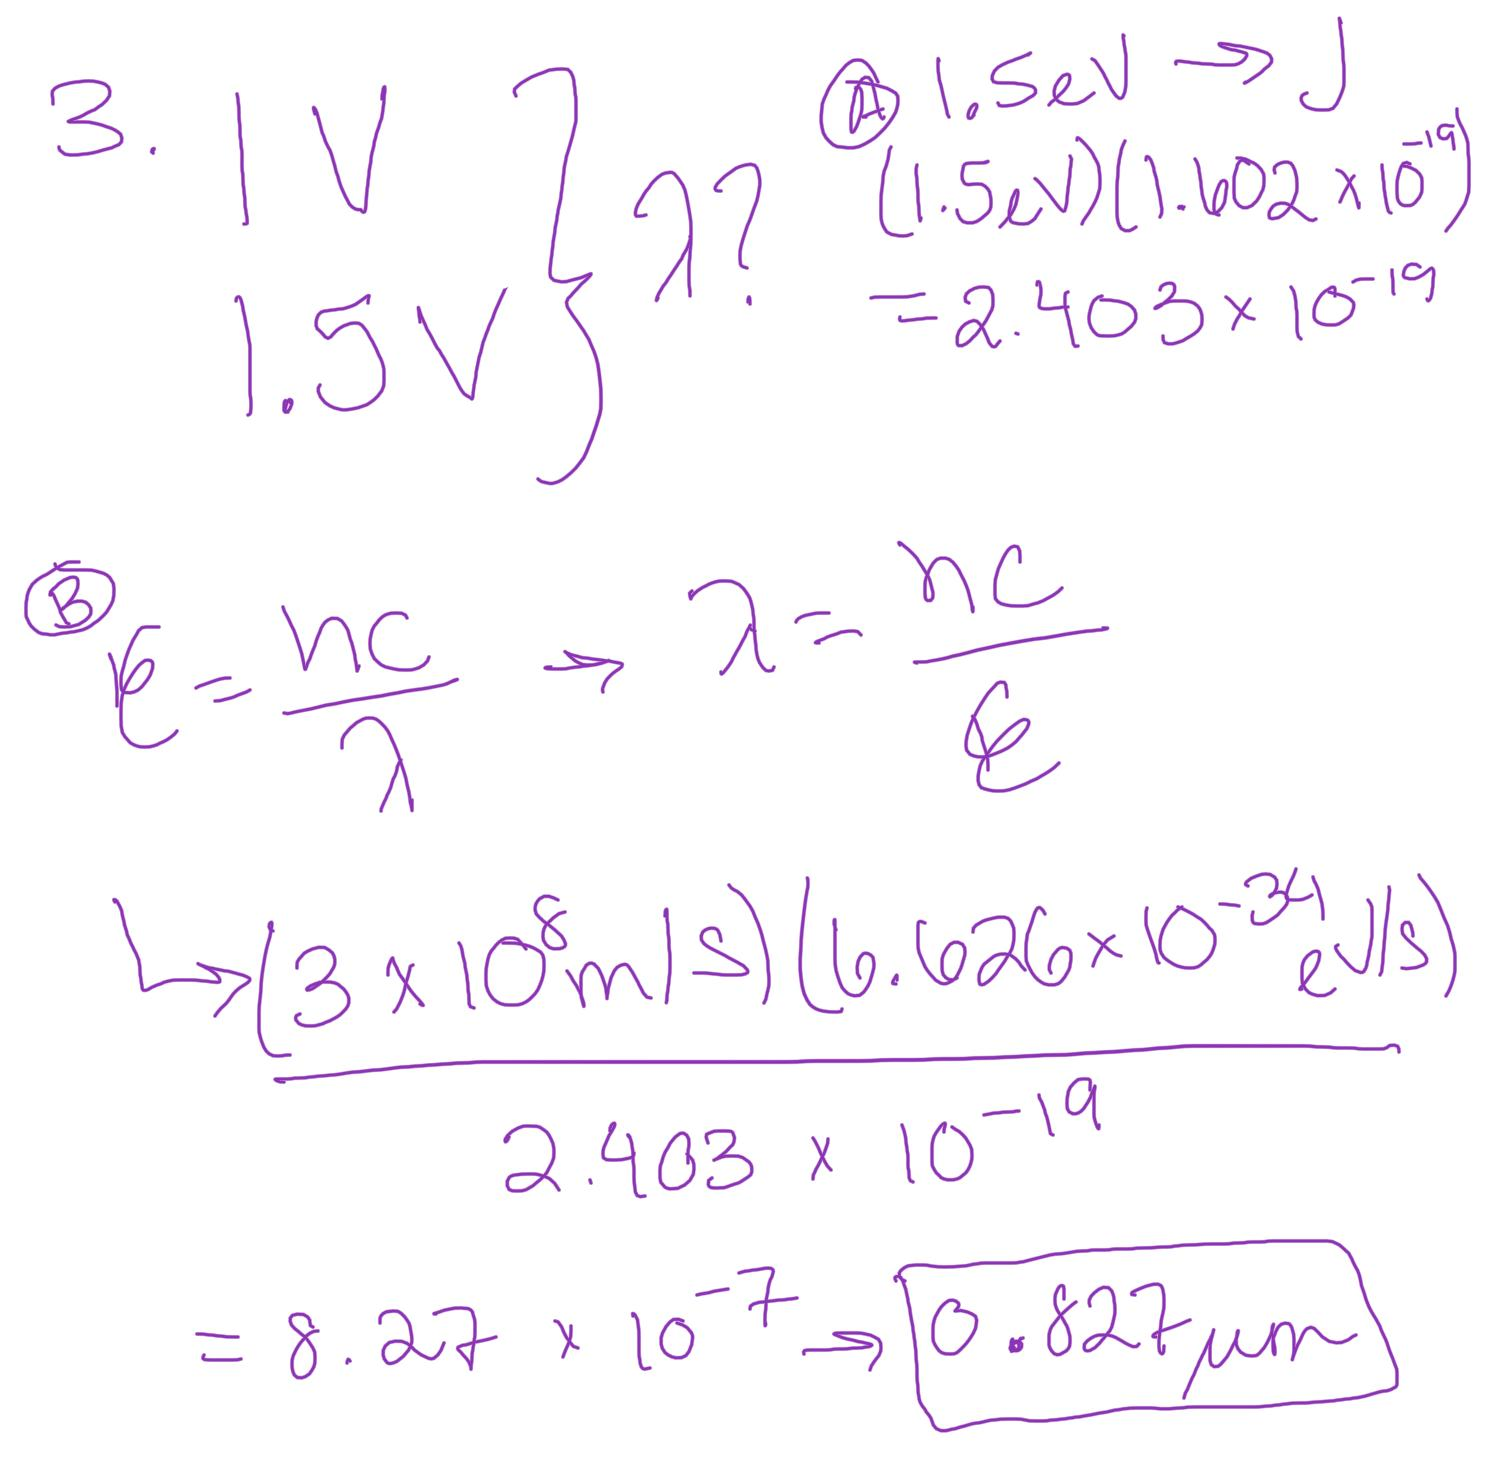 3. 1 V
1.5V
} λ?
Ⓐ 1.5eV → J
(1.5eV)(1.602 × 10⁻¹⁹)
= 2.403 × 10⁻¹⁹
Ⓑ E = hc / λ → λ = hc / E
↳ (3 × 10⁸ m/s)(6.626 × 10⁻³⁴ eV/s)
2.403 × 10⁻¹⁹
= 8.27 × 10⁻⁷ → 0.827 μm